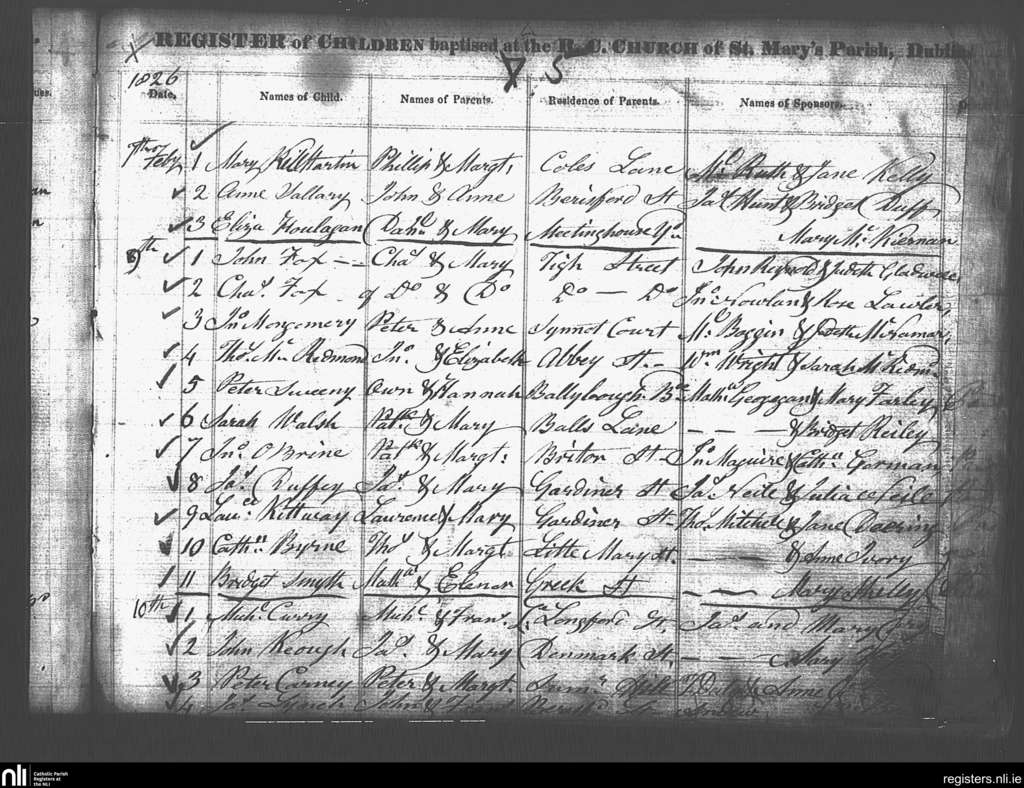 REGISTER of CHILDREN baptised at the R. C. CHURCH of St. Mary's Parish, Dublin
1826
Date. Names of Child. Names of Parents. Residence of Parents. Names of Sponsors.
7th of Feby 1 Mary Kill Martin Phillip & Margt. Coles Lane & Jane Kelly
2 Anne Vallary John & Anne Berisford St Jas Hunt & Bridget Duff
3 Eliza Houlagan Danl & Mary Meetinghouse Yd Mary Mc Kiernan
8th 1 John Fox Chas & Mary Tigh Street John Reynold & Judeth Gladwell
2 Chas. Fox of Do & Do Do — Do Jno Nowlan & Rose Lawler
3 Jno Mongomery Peter & Anne Synnot Court Ml Boggin & Judeth
4 Thos. Mc Redmond Jno. & Elizabeth Abbey St. Wm Wright & Sarah
5 Peter Sweeny Own & Hannah Ballybough Be & Mary Farley
6 Sarah Walsh Patk & Mary Balls Lane — — — & Bridget Reiley
7 Jno. O'Brine Patk & Margt: Briton St Jno Maguire & Cathn Gorman
8 Jas. Duffey Jas. & Mary Gardiner St Jas. Neile & Julia Neile
9 Lawce Kittavay Laurence & Mary Gardiner St Thos Mitchell & Jane Doering
10 Cathn Byrne Thos & Margt. Little Mary St. — — & Anne Ivory
11 Bridget Smyth & Elenor Greek St — — Mary
10th 1 Michl Curry Michl & Fran. Longford St. Jas. and Mary
2 John Keough Jas. & Mary Denmark St. — — Mary
3 Peter Carney Peter & Margt. Sumr Hill & Anne
4 Jas. Lynch John &
nli Catholic Parish
Registers at
the NLI
registers.nli.ie